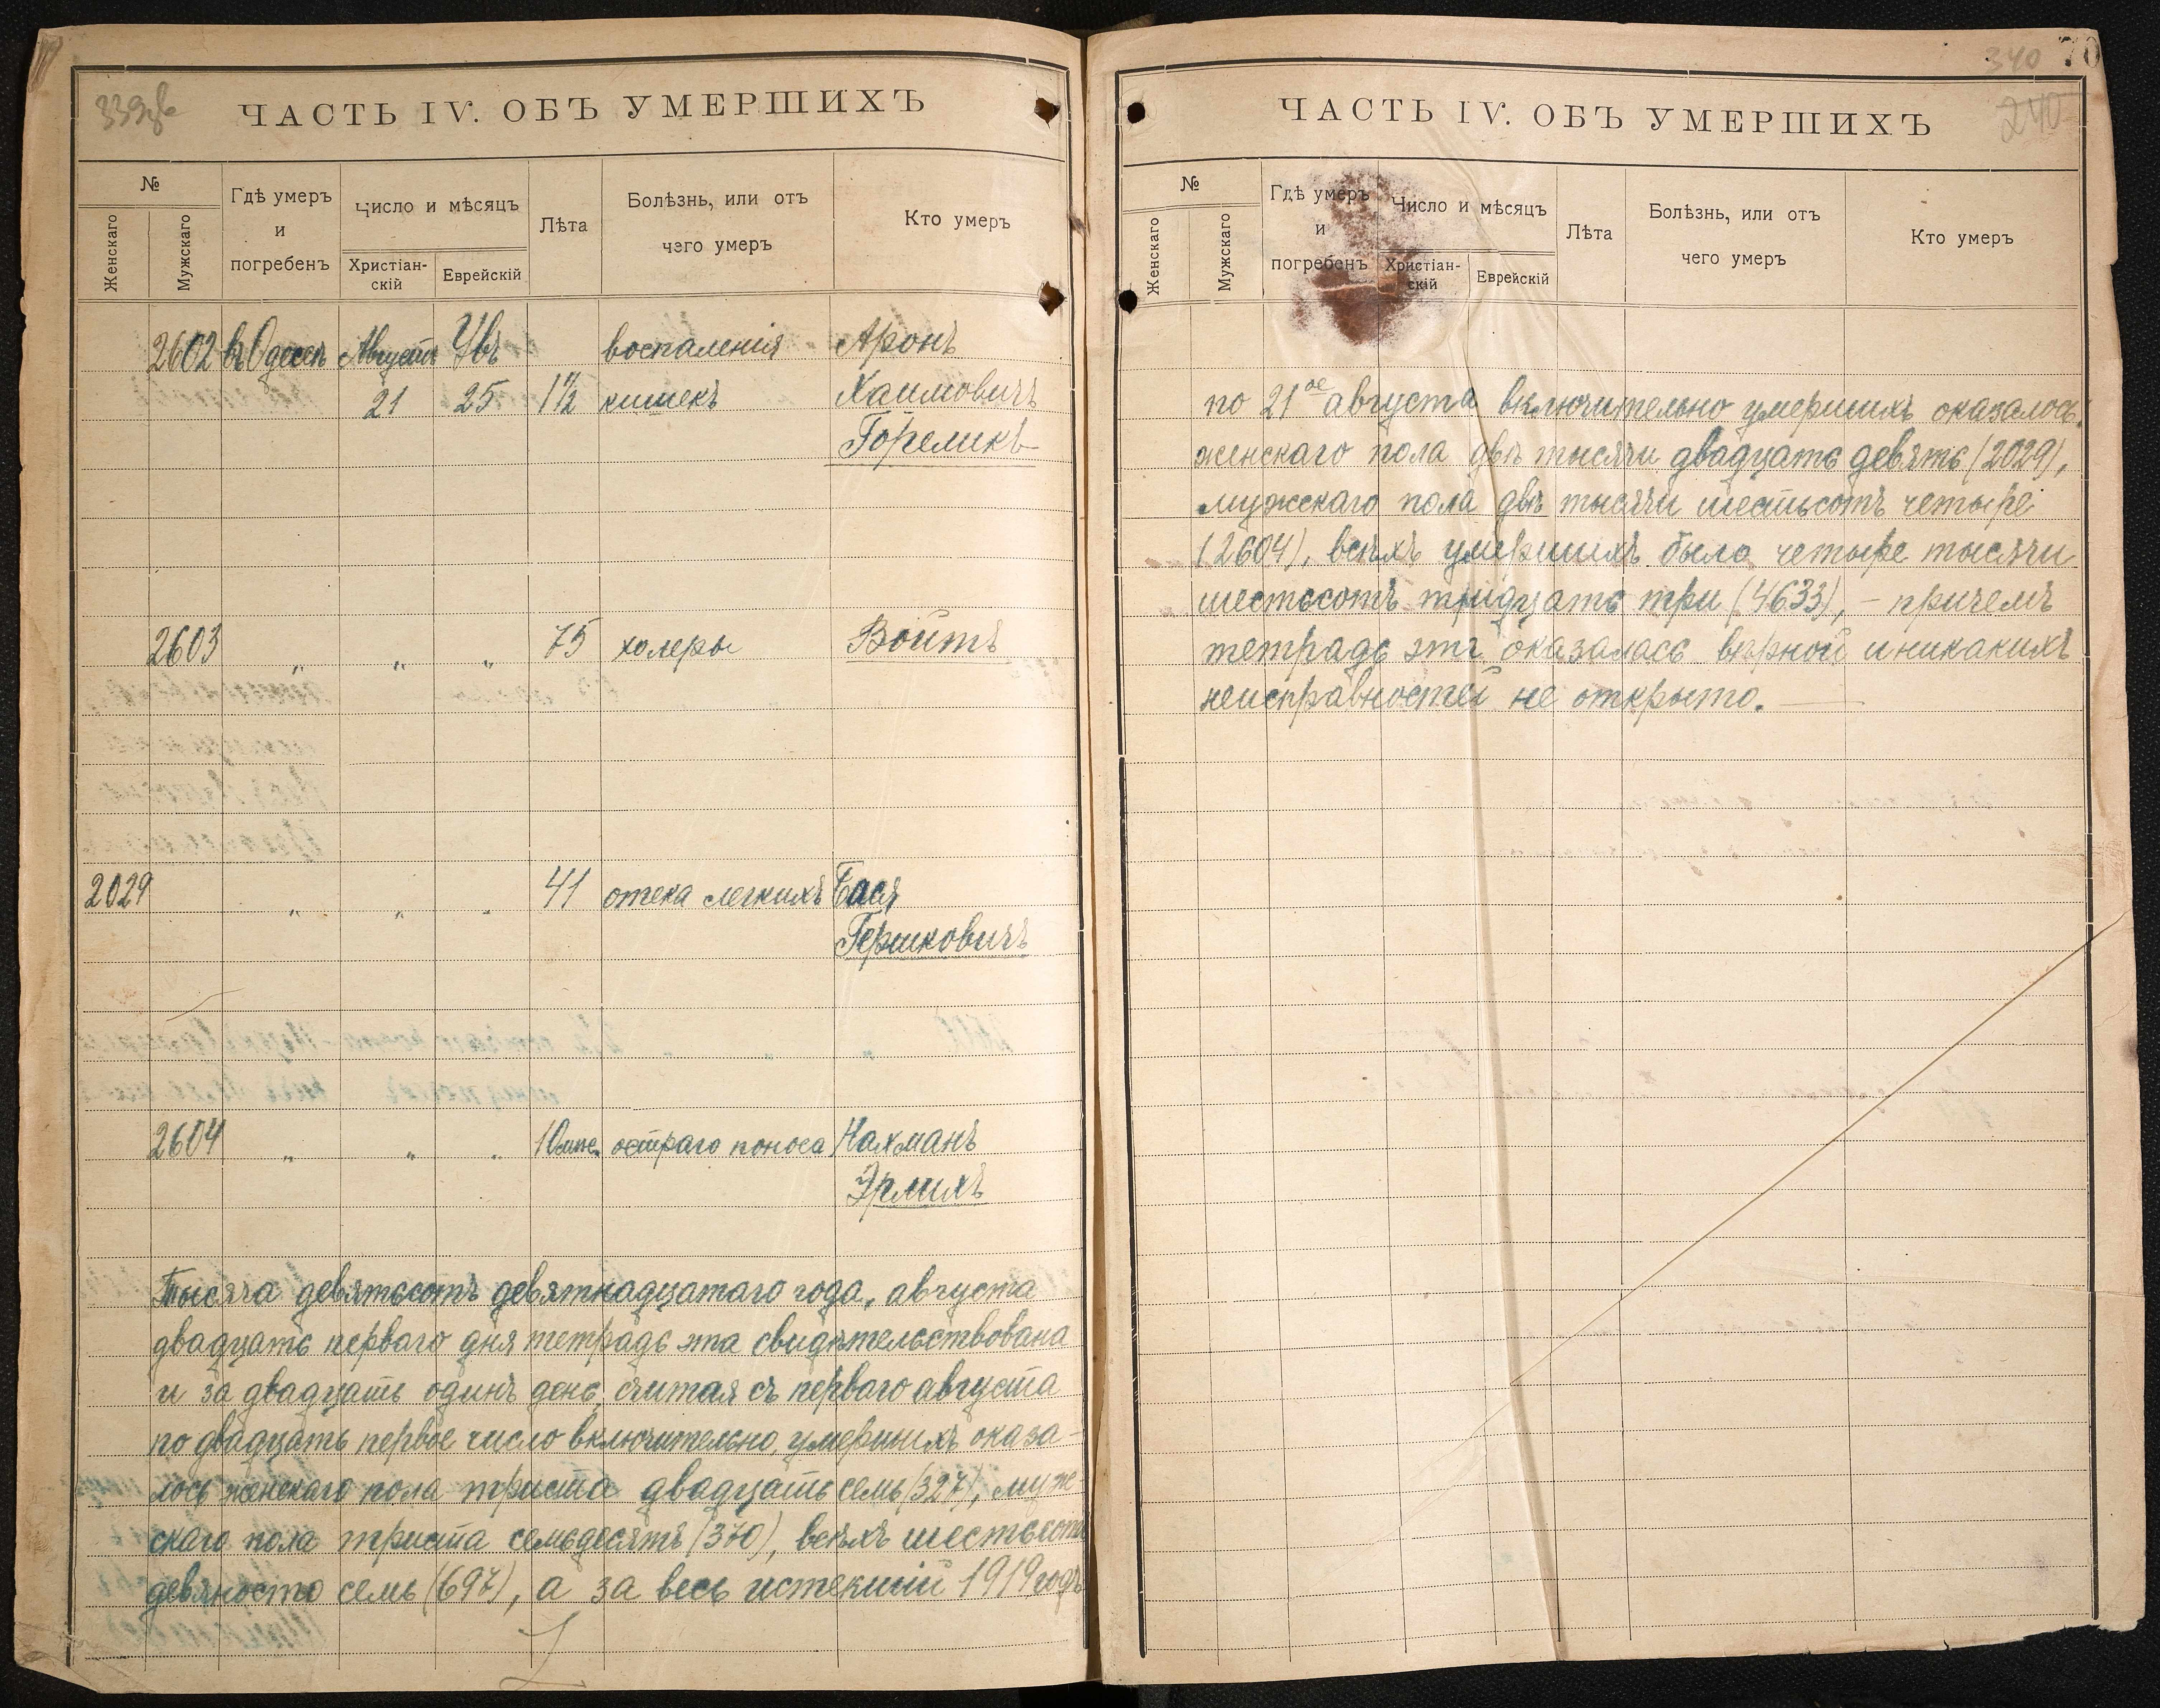 339об
ЧАСТЬ IV. ОБЪ УМЕРШИХЪ
№
Женскаго
Мужскаго
Гдѣ умеръ
и
погребенъ
Число и мѣсяцъ
Христіан-
скій
Еврейскій
Лѣта
Болѣзнь, или отъ
чего умеръ
Кто умеръ
2602 въ Одессѣ Августа воспаленія Аронъ
21 25 1 1/2 кишекъ Хаимовичъ
Гореликъ
2603 " " " 75 холеры Войтъ
2029 " " " 41 отека легкихъ Бася
Гершковичъ
2604 " " " 10 мѣс. остраго поноса Нахманъ
Эрлихъ
Тысяча девятьсотъ девятнадцатаго года, августа
двадцать перваго дня тетрадь эта свидѣтельствована
и за двадцать одинъ день, считая съ перваго августа
по двадцать первое число включительно, умершихъ оказа-
лось женскаго пола триста двадцать семь (327), муже-
скаго пола триста семьдесятъ (370), всѣхъ шестьсотъ
девяносто семь (697), а за весь истекшій 1919 годъ
340 70
240
ЧАСТЬ IV. ОБЪ УМЕРШИХЪ
№
Женскаго
Мужскаго
Гдѣ умеръ
и
погребенъ
Число и мѣсяцъ
Христіан-
скій
Еврейскій
Лѣта
Болѣзнь, или отъ
чего умеръ
Кто умеръ
по 21ое августа включительно умершихъ оказалось:
женскаго пола двѣ тысячи двадцать девять (2029),
мужскаго пола двѣ тысячи шестьсотъ четыре
(2604), всѣхъ умершихъ было четыре тысячи
шестьсотъ тридцать три (4633), – причемъ
тетрадь эта оказалась вѣрной и никакихъ
неисправностей не открыто. —